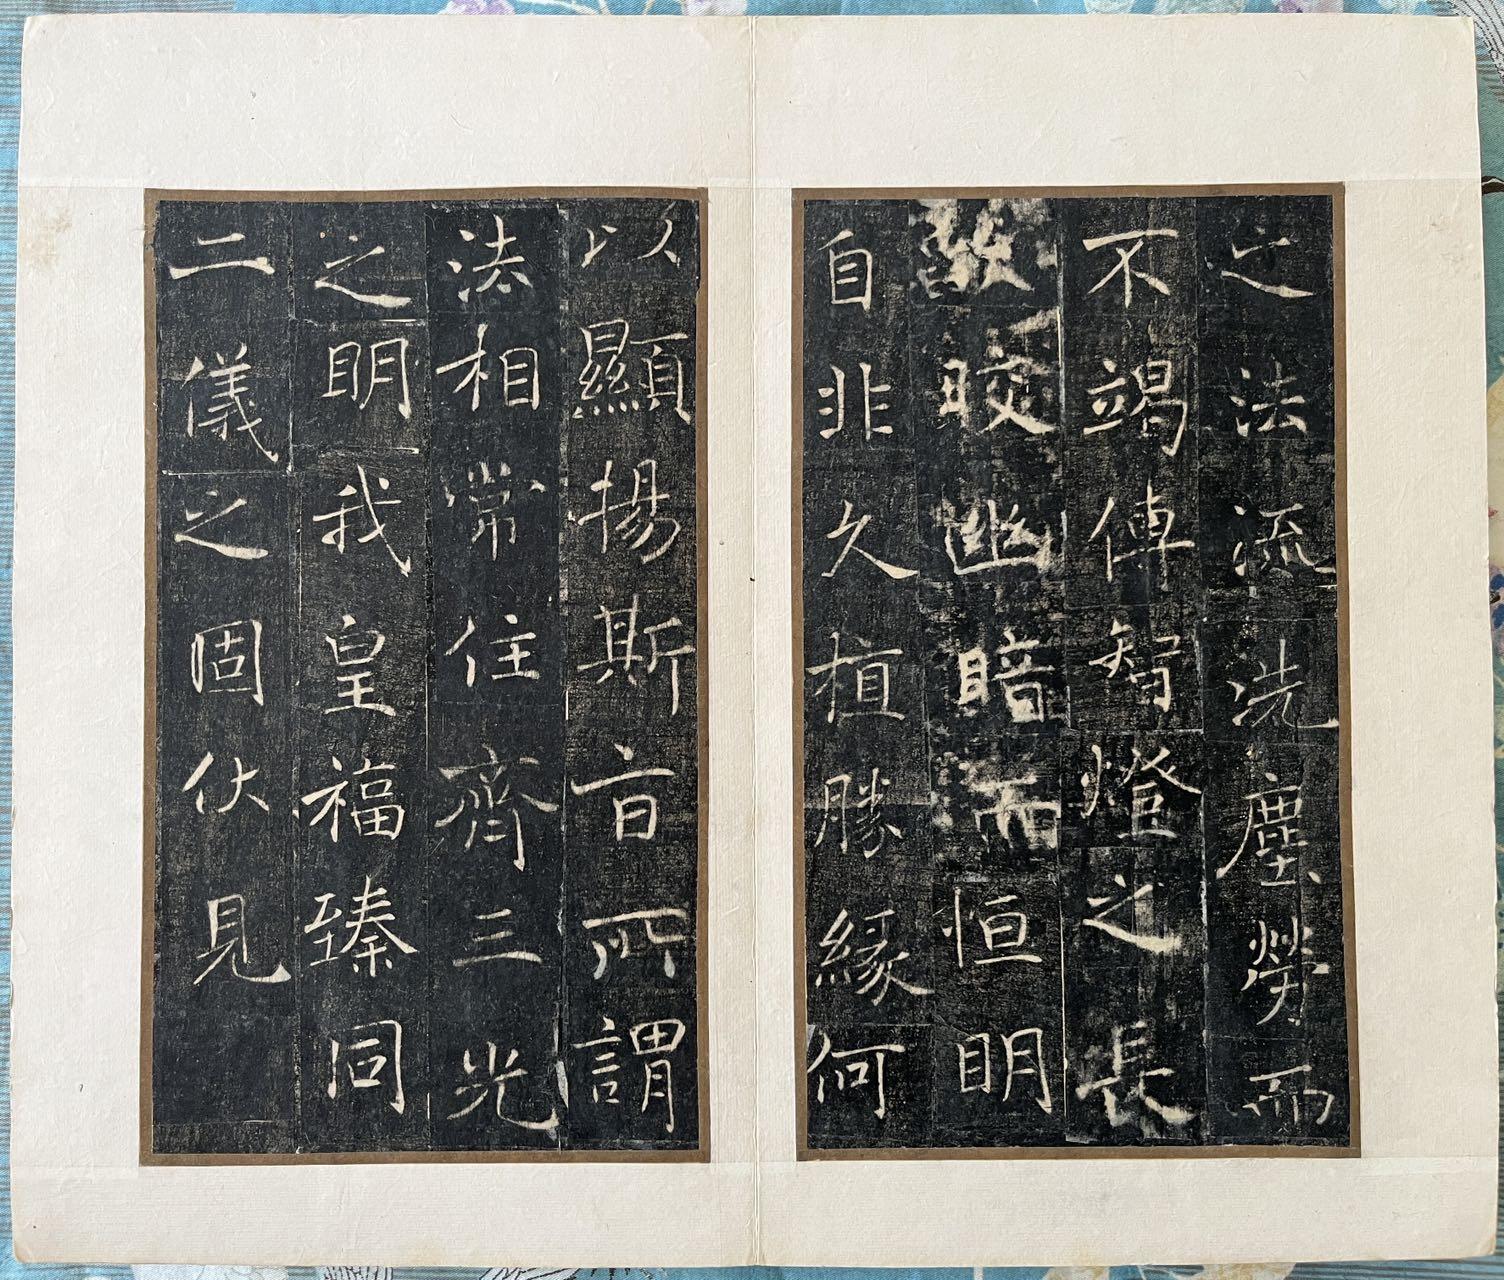 之法流洗塵勞而
不竭傳智燈之長
燄晈幽暗而恒明
自非久植勝緣何
以顯揚斯旨所謂
法相常住齊三光
之明我皇福臻同
二儀之固伏見